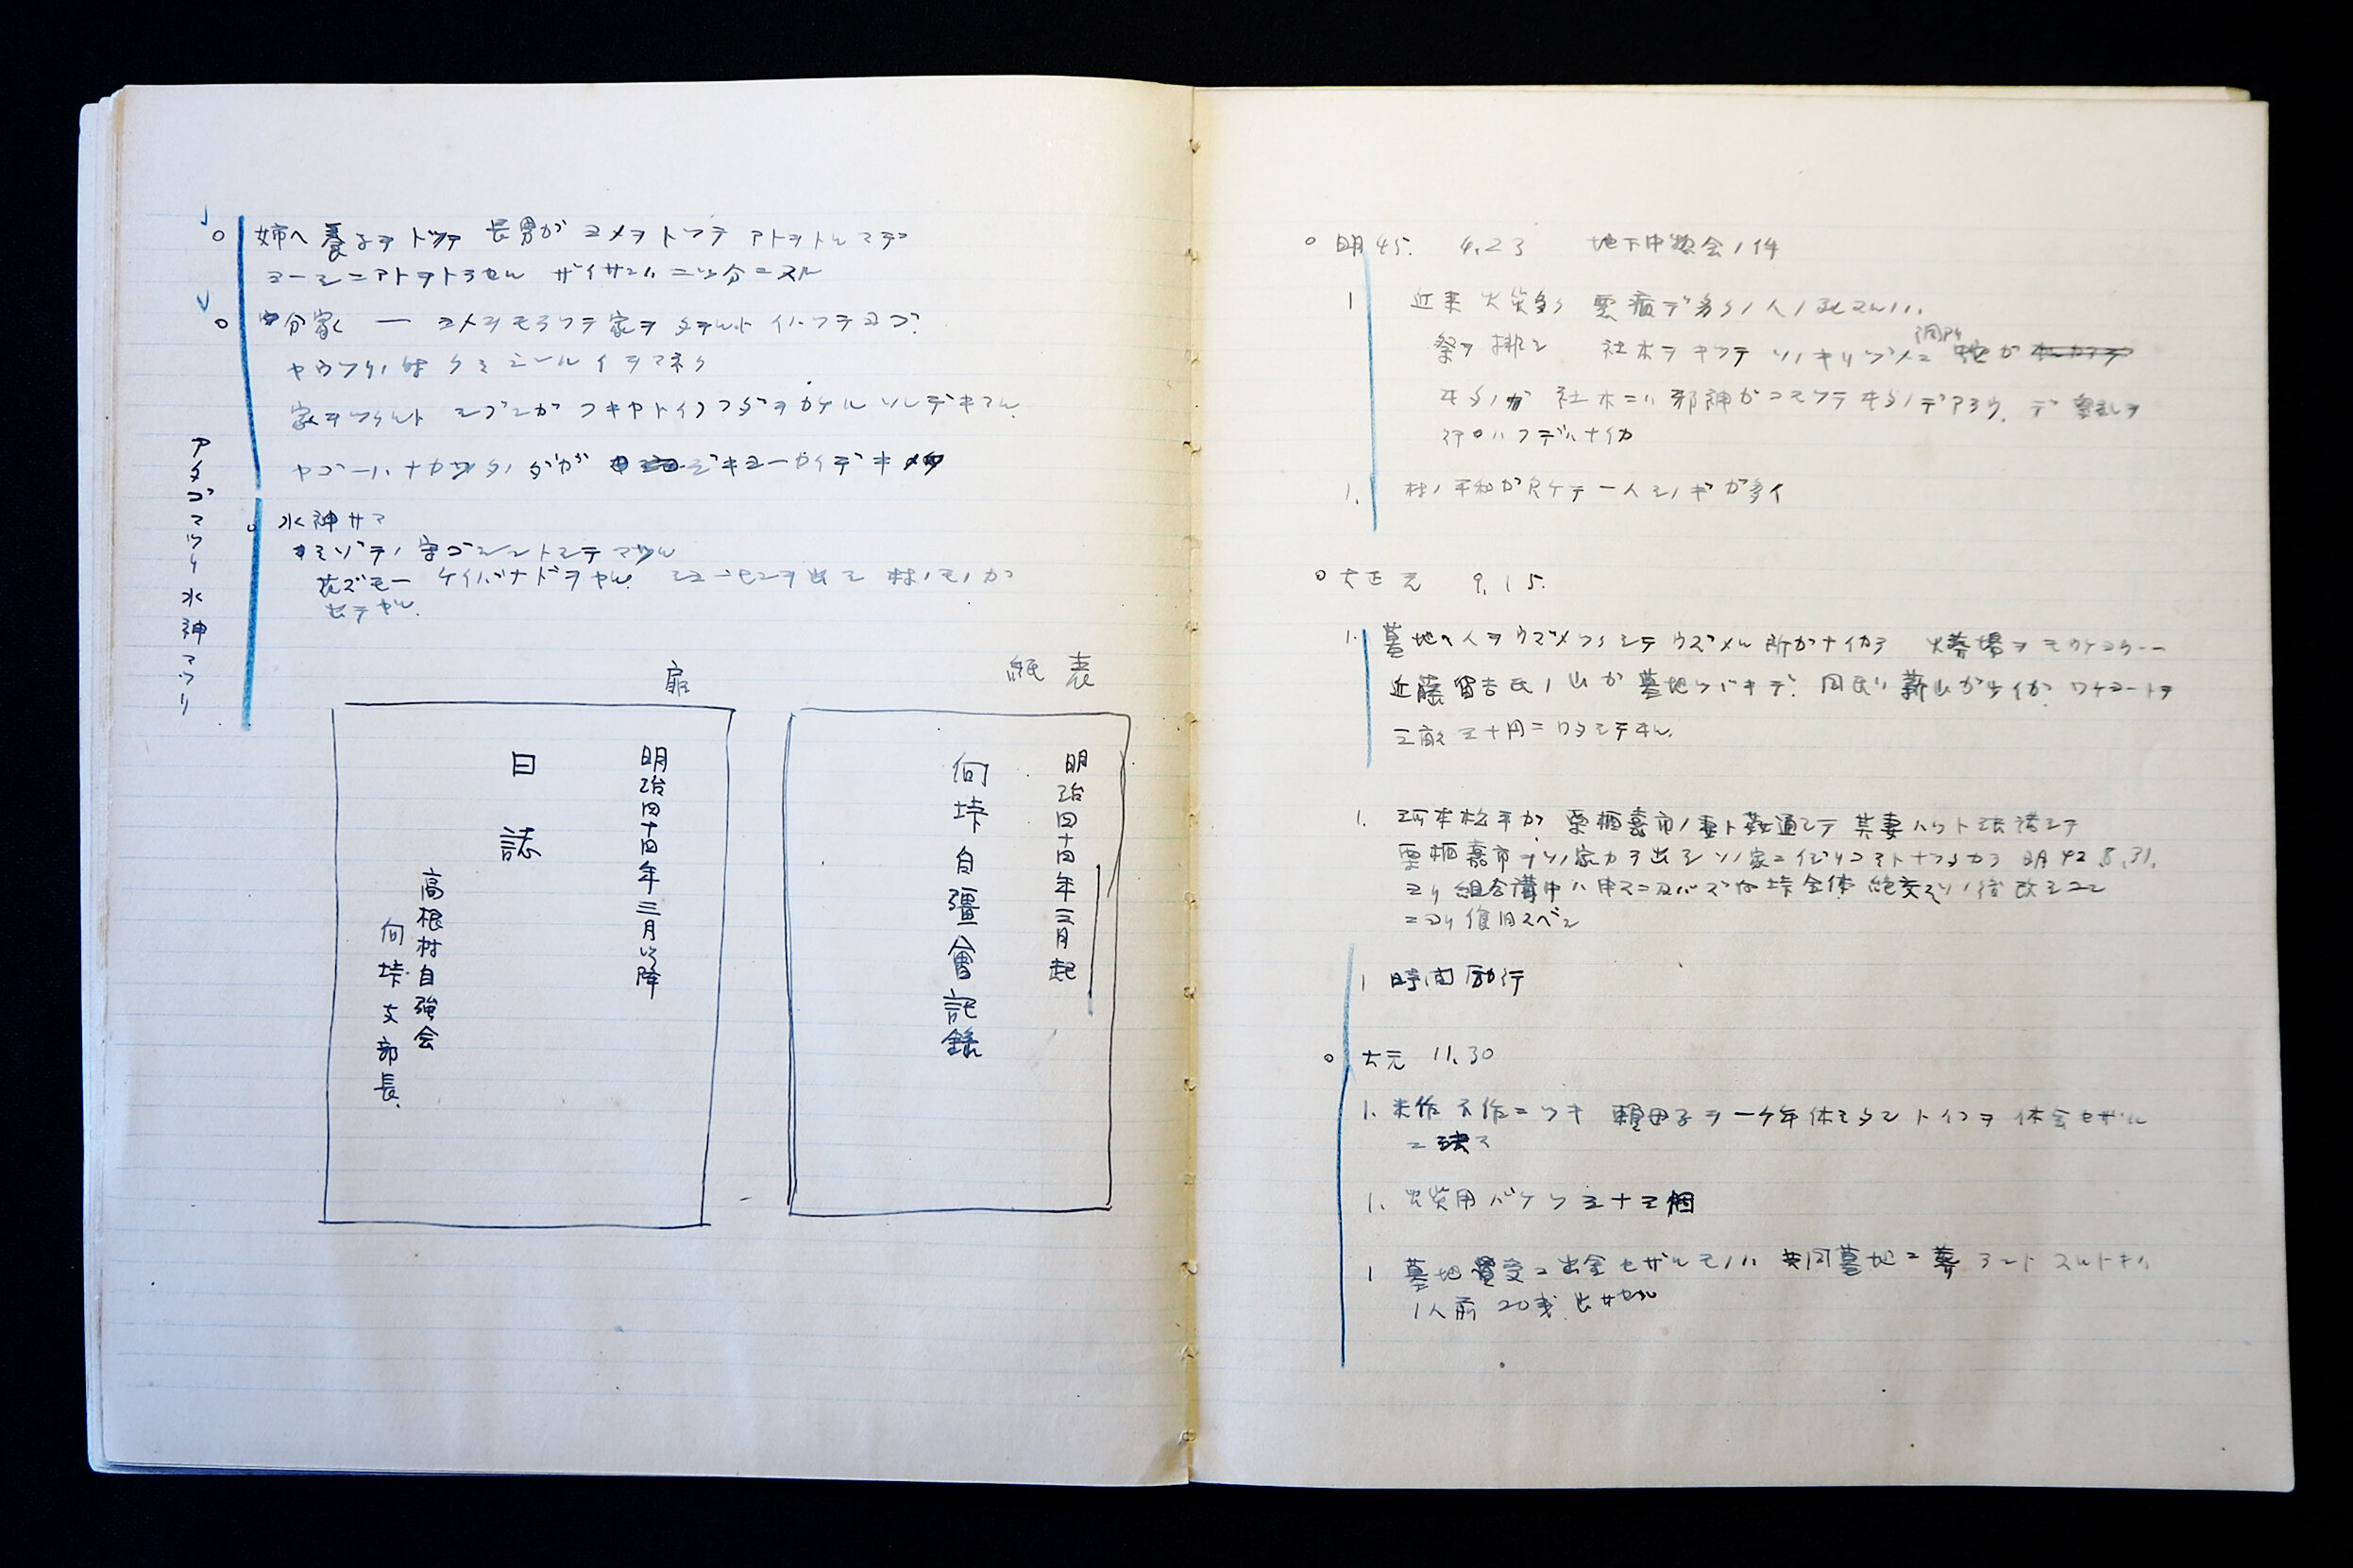 姉ヘ養子ヲトツテ 長男ガヨメヲトツテ アトヲトルマデ
ヨーシニアトヲトラセル ザイサンハ二ツ分ニスル
分家 ー ヨメヲモラツテ家ヲタテルト
ヤウツリノ時 クミ シンルイヲマネク
家ヲツクルト シブンガフキヤトイフフダヲカケル ソレデキマル
ヤゴーハナカツタノダガ
水神サマ
ミゾテノ守ゴシントシテマツル
花ズモー ケイバナドヲヤル 村ノモノガ
出テヤル.
アタゴマツリ 水神マツリ
表紙
明治四十四年三月起
向垰自彊會記録
扉
明治四十四年三月以降
日誌
高根村自強会
向垰支部長.
明45. 4.23 地下中惣会ノ件
1 近来火災多ク 悪病デ多クノ人ノ死スルハ.
祭ヲ排シ 社木ヲキツテ ソノキリツノニ 蛇ガ
キタノガ 社木ニハ邪神ガコモツテキタノデアラウ. デ祭礼ヲ
行ハフデハナイカ
1. 村ノ平和ガ欠ケテ一人シノギガ多イ
大正元 9.15.
1. 墓地ヘ人ヲウズメツクシテ ウズメル所ガナイカラ 火葬場ヲモウケヨウー
近藤留吉氏ノ山ガ墓地ツヾキデ. 同氏ハ薪山ガナイカラ
三畝 三十円ニワタシテオル.
1. 松平ガ 栗栖嘉市ノ妻ト姦通シテ 其妻ハ
栗栖嘉市ヲソノ家カラ出シ ソノ家ニイリコミトナツタカラ 明42 8.31.
ヨリ組合講中ハ申スニ及バズ 垰全体絶交ソノ後改シユン
ニヨリ復旧スベシ
1 時間励行
大元 11.30
1. 米作不作ニツキ 頼母子ヲ一ケ年休ミタシトイフヲ 休会セザル
ニ決ス
1. 火災用バケツ三十三個
1 墓地買受ニ出金セザルモノハ 共同墓地ニ葬ラントスルトキハ
1人前 20銭 出サセル